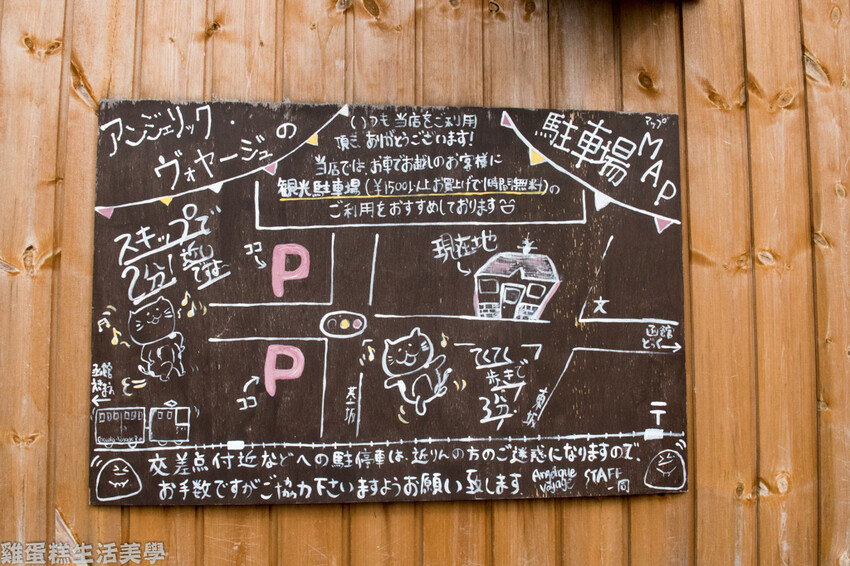 アンジェリック・の
ヴォヤージュ
いつも当店をご利用
頂き、ありがとうございます!
当店では、お車でお越しのお客様に
観光駐車場(¥1500以上お買上げで1時間無料)の
ご利用をおすすめしております
駐車場
マップ
MAP
スキップで
2分!近いです
ココ
P
現在地
P
ココ
基坂
てくてく
歩きで
3分
東坂
文
函館
どっく
函館
〒
交差点付近などへの駐停車は、近りんの方のご迷惑になりますので、
お手数ですがご協力下さいますようお願い致します。
Angelique
Voyage
STAFF
一同
雞蛋糕生活美學